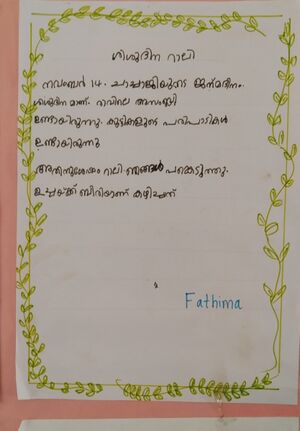 ശിശുദിന റാലി
നവംബർ 14. ചാച്ചാജിയുടെ ജന്മദിനം.
ശിശുദിനമാണ്. രാവിലെ അസംബ്ലി
ഉണ്ടായിരുന്നു. കുട്ടികളുടെ പരിപാടികൾ
ഉണ്ടായിരുന്നു
അതിനുശേഷം റാലി. ഞങ്ങൾ പങ്കെടുത്തു.
ഉച്ചയ്ക്ക് ബിരിയാണി കഴിച്ചത്
Fathima